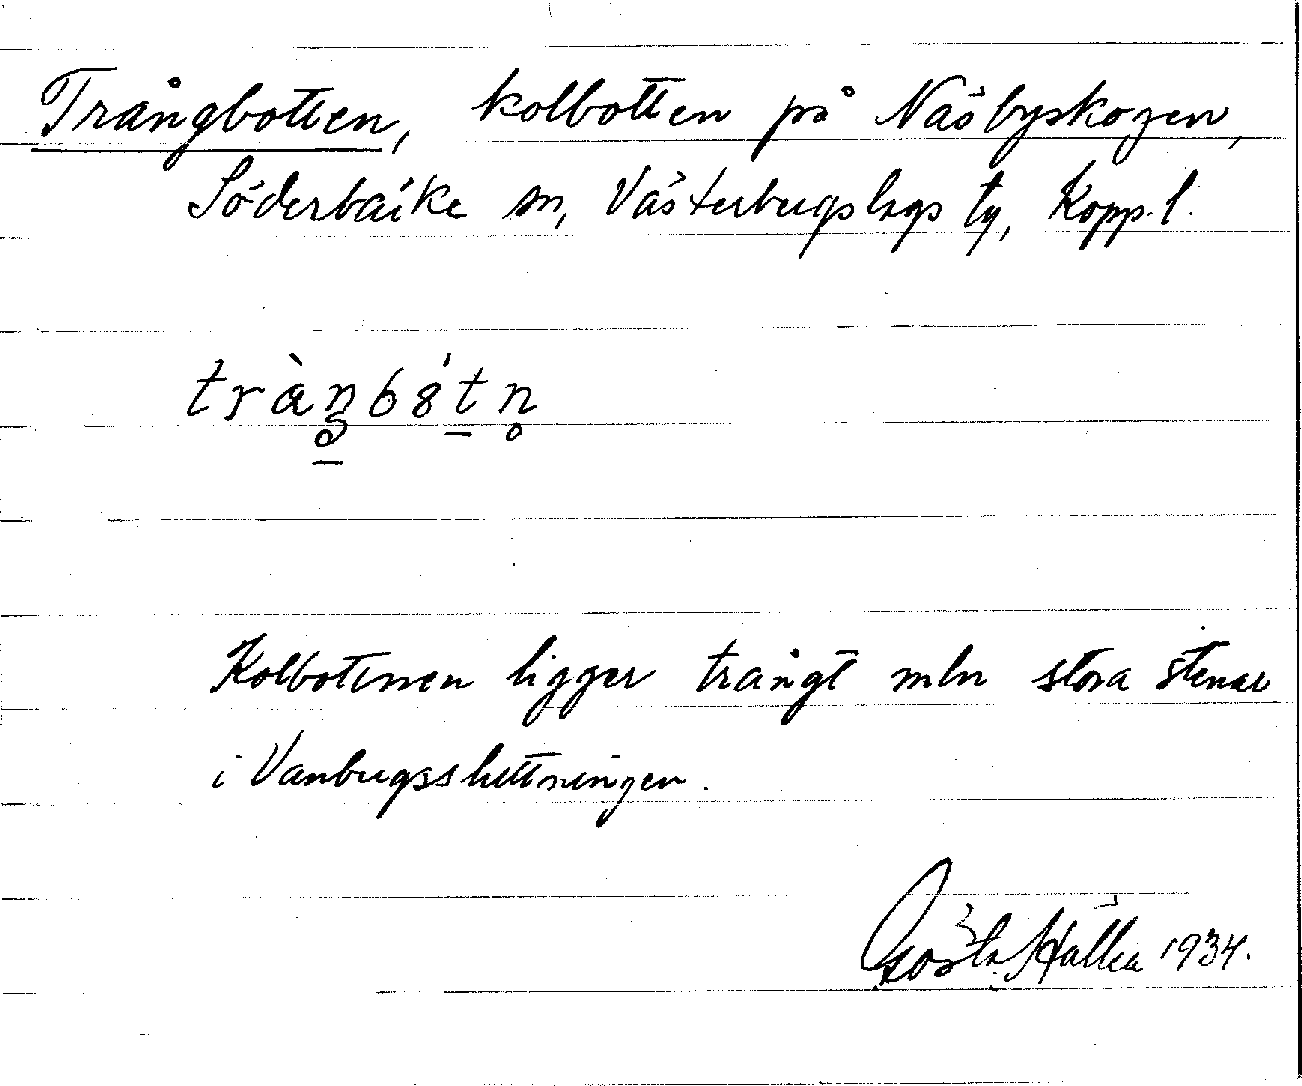 Trångbotten, kolbotten på Näsbyskogen,
Söderbärke sn, Västerbergslags tg, Kopp. l.
tràŋbȣ́tn̥
Kolbottnen ligger trångt mln stora stenar
i Vanbergssluttningen.
Gösta 1934.